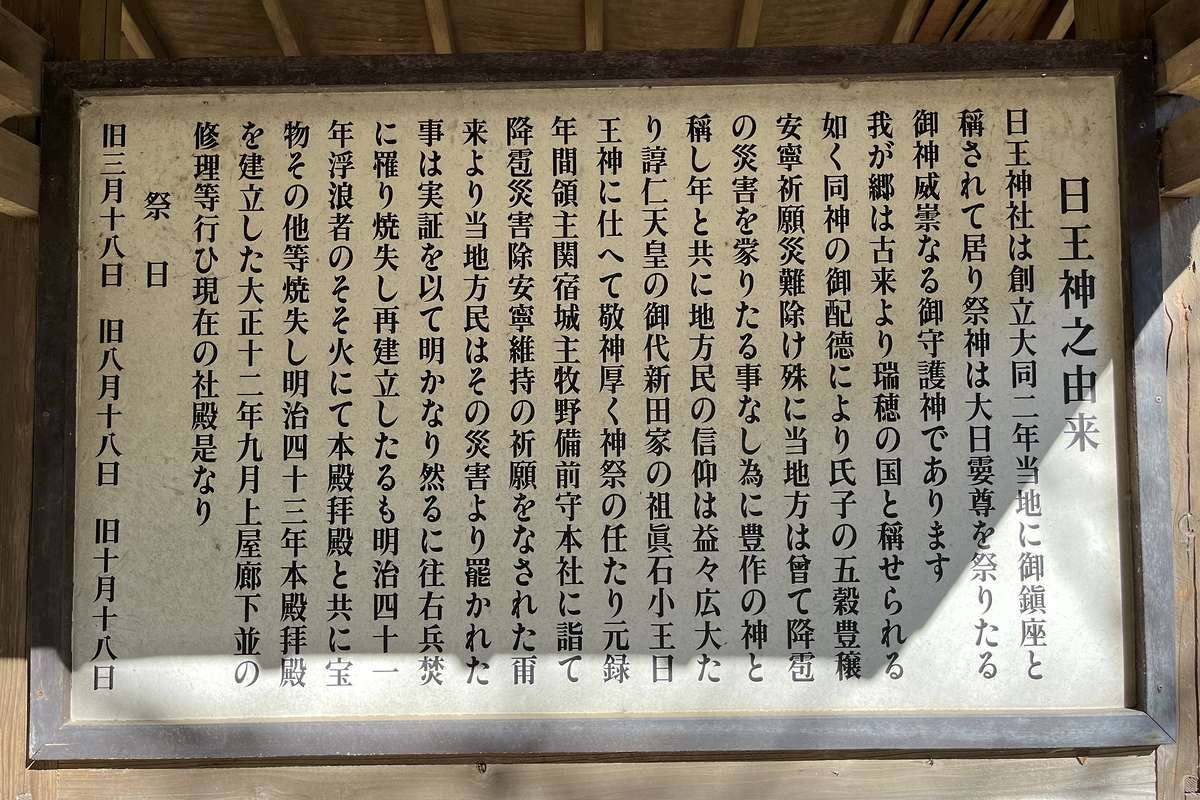 日王神之由来
日王神社は創立大同二年当地に御鎮座と
稱されて居り祭神は大日孁尊を祭りたる
御神威崇なる御守護神であります
我が郷は古来より瑞穂の国と稱せられる
如く同神の御配德により氏子の五穀豊穰
安寧祈願災難除け殊に当地方は曾て降雹
の災害を蒙りたる事なし為に豊作の神と
稱し年と共に地方民の信仰は益々広大た
り諄仁天皇の御代新田家の祖眞石小王日
王神に仕へて敬神厚く神祭の任たり元録
年間領主関宿城主牧野備前守本社に詣て
降雹災害除安寧維持の祈願をなされた甫
来より当地方民はその災害より罷かれた
事は実証を以て明かなり然るに往右兵焚
に罹り焼失し再建立したるも明治四十一
年浮浪者のそそ火にて本殿拝殿と共に宝
物その他等焼失し明治四十三年本殿拝殿
を建立した大正十二年九月上屋廊下並の
修理等行ひ現在の社殿是なり
祭日
旧三月十八日 旧八月十八日 旧十月十八日